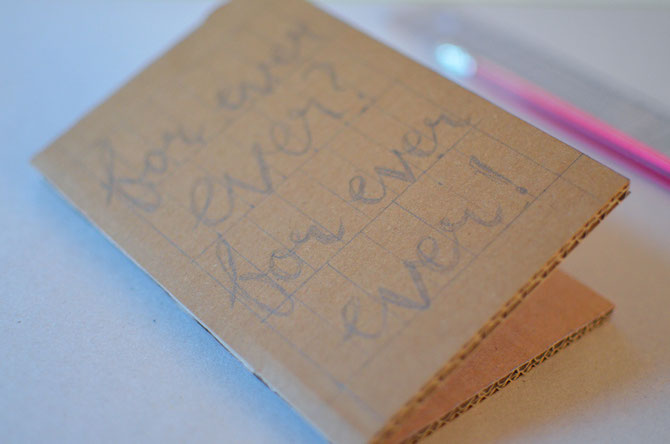 for ever
ever?
for ever
ever!